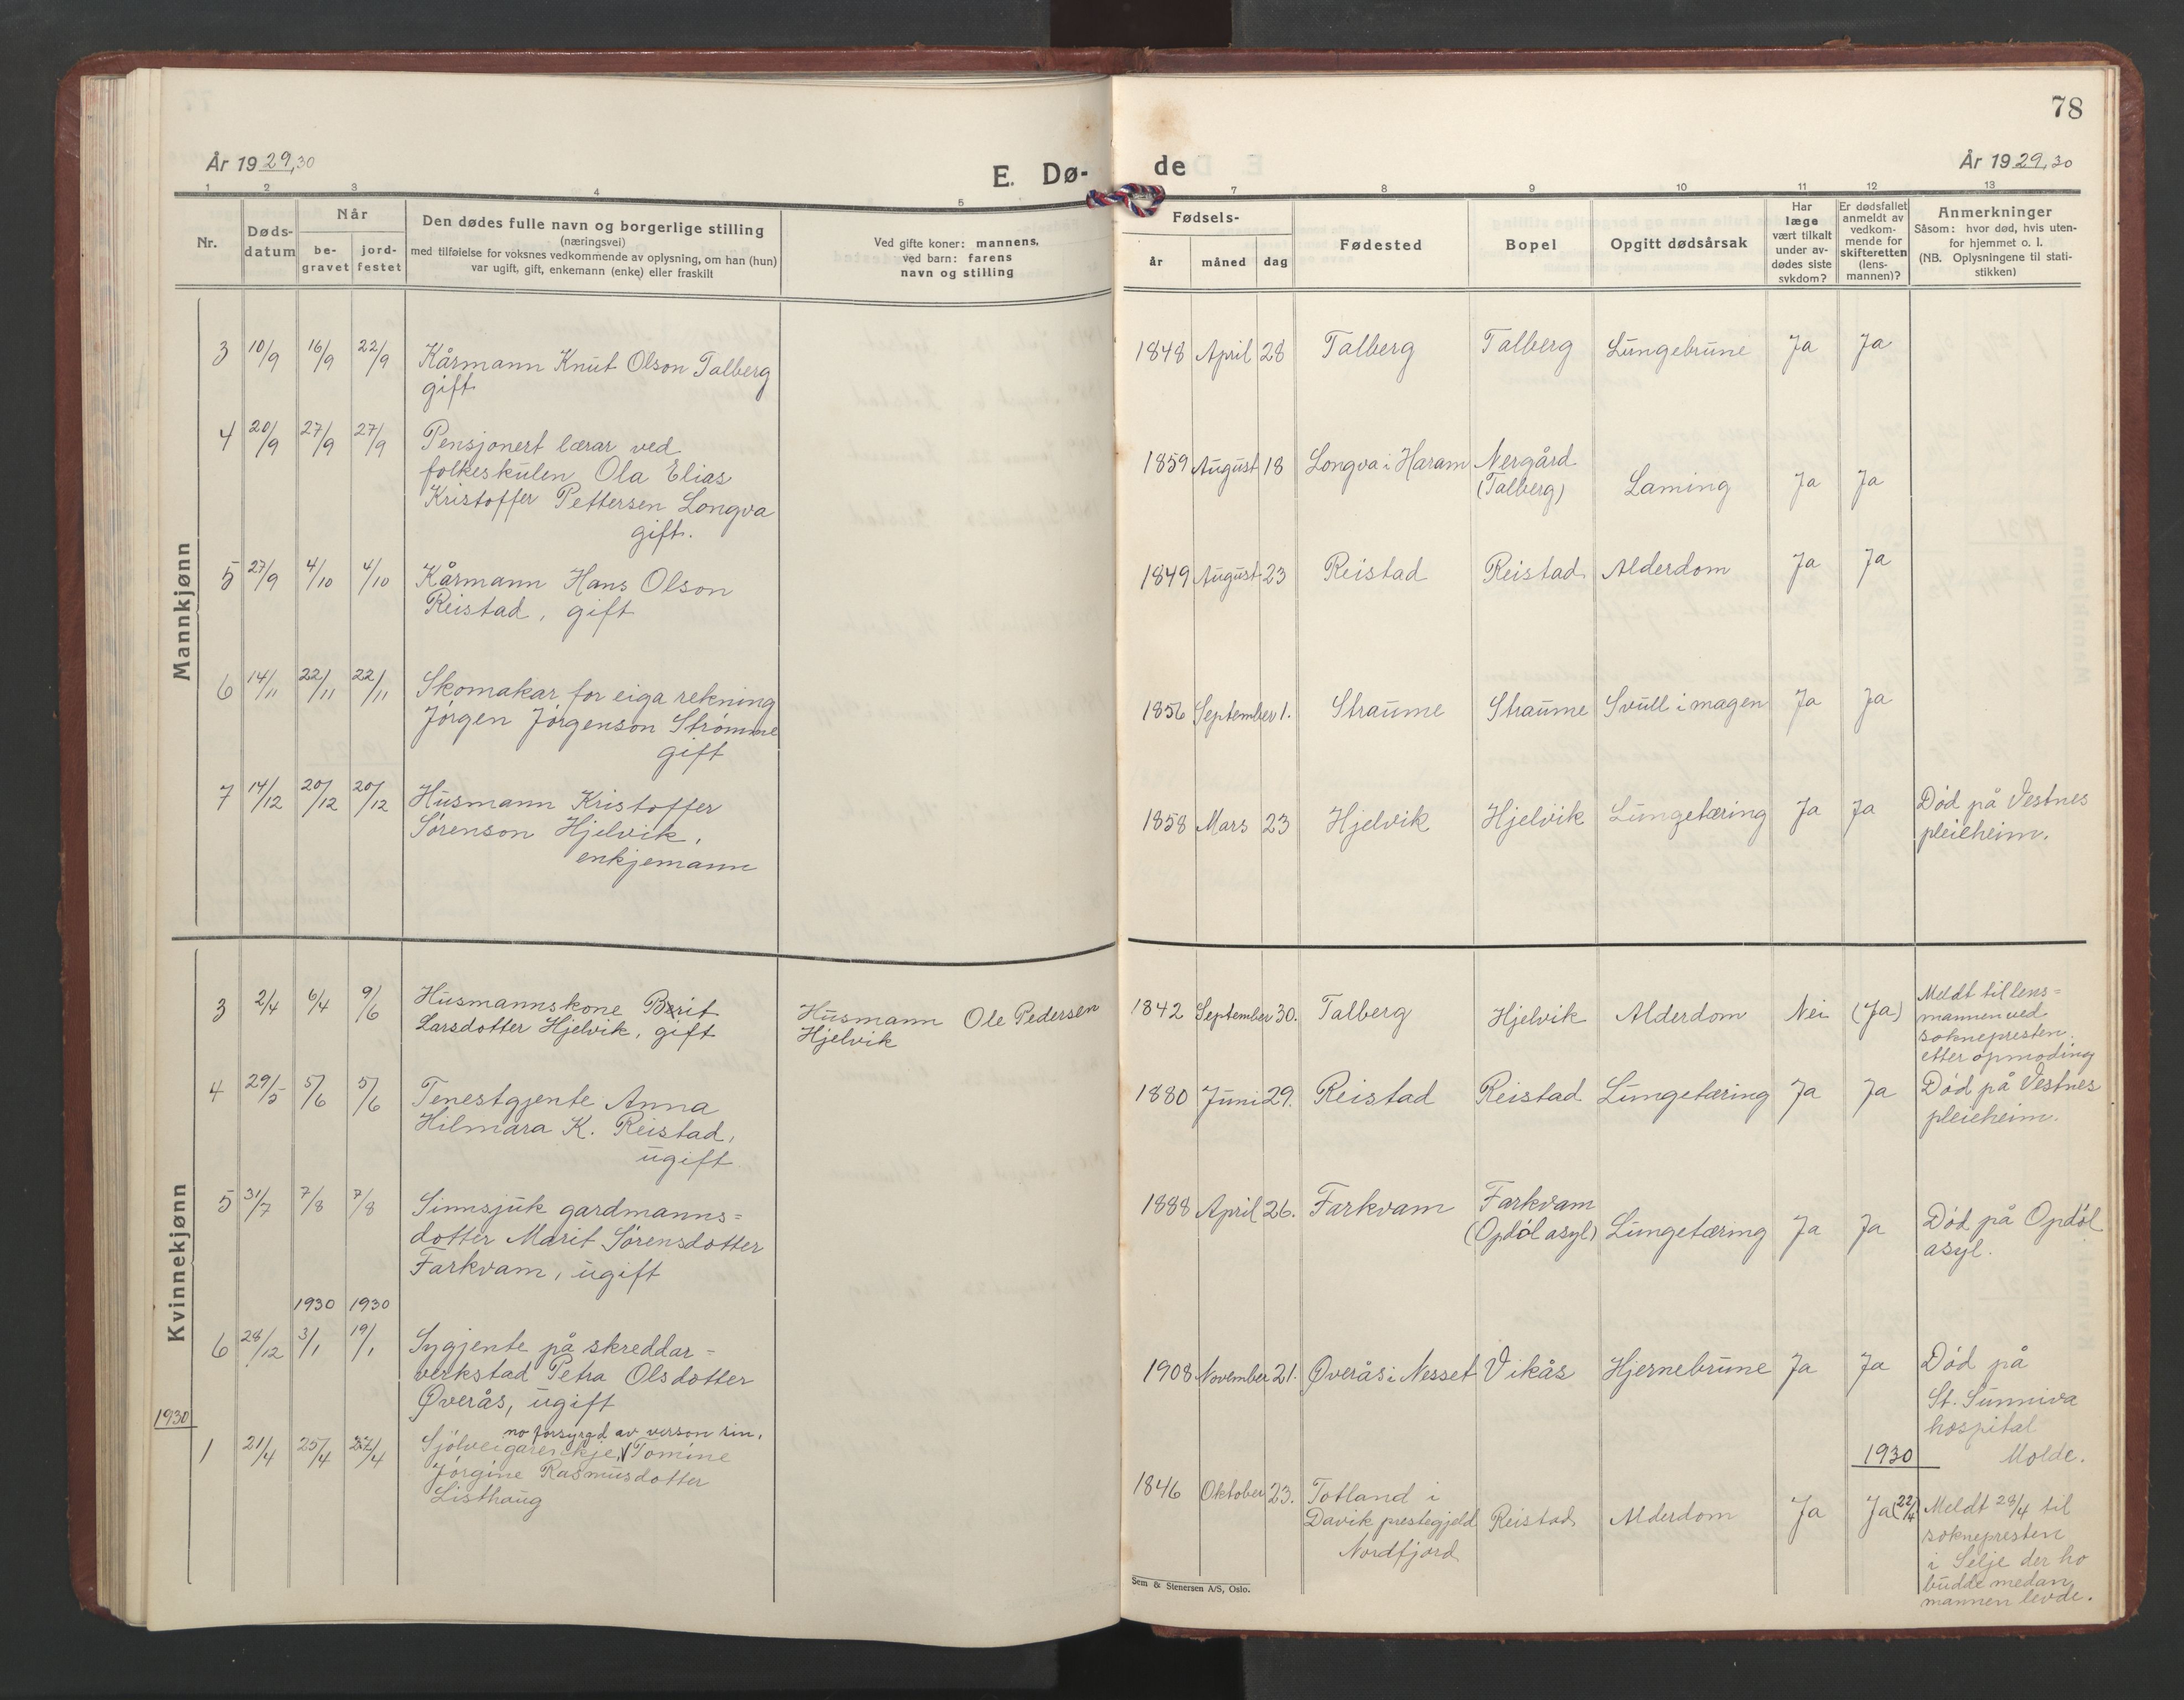 78
År 1929,30
E. Dø-
de
År 1929,30
1 2 3 4 5 7 8 9 10 11 12 13
Nr.
Døds-
datum
Når
be-
gravet
jord-
festet
Den dødes fulle navn og borgerlige stilling
(næringsvei)
med tilføielse for voksnes vedkommende av oplysning, om han (hun)
var ugift, gift, enkemann (enke) eller fraskilt
Ved gifte koner: mannens,
ved barn: farens
navn og stilling
Fødsels-
år måned dag
Fødested
Bopel
Opgitt dødsårsak
Har
læge
vært tilkalt
under av-
dødes siste
sykdom?
Er dødsfallet
anmeldt av
vedkom-
mende for
skifteretten
(lens-
mannen)?
Anmerkninger
Såsom: hvor død, hvis uten-
for hjemmet o. l.
(NB. Oplysningene til stati-
stikken)
Mannkjønn
3 10/9 16/9 22/9 Kårmann Knut Olson Talberg
gift
1848 April 28 Talberg Talberg Lungebrune Ja Ja
4 20/9 27/9 27/9 Pensjonert lærar ved
folkeskulen Ola Elias
Kristoffer Pettersen Longva
gift.
1859 August 18 Longva i Haram Nergård
(Talberg) Laming Ja Ja
5 27/9 4/10 4/10 Kårmann Hans Olson
Reistad, gift
1849 August 23 Reistad Reistad Alderdom Ja Ja
6 14/11 22/11 22/11 Skomakar for eiga rekning
Jørgen Jørgenson Strømme
gift
1856 September 1. Straume Straume Svull i magen Ja Ja
7 14/12 20/12 20/12 Husmann Kristoffer
Sørenson Hjelvik,
enkjemann
1858 Mars 23 Hjelvik Hjelvik Lungetæring Ja Ja Død på Vestnes
pleieheim.
Kvinnekjønn
3 2/4 6/4 9/6 Husmannskone Berit
Larsdotter Hjelvik, gift
Husmann Ole Pedersen
Hjelvik
1842 September 30. Talberg Hjelvik Alderdom Nei (Ja) Meldt til lens=
mannen ved
soknepresten
etter opmoding
4 29/5 5/6 5/6 Tenestgjente Anna
Hilmara K. Reistad,
ugift
1880 Juni 29. Reistad Reistad Lungetæring Ja Ja Død på Vestnes
pleieheim.
5 31/7 7/8 7/8 Sinnsjuk gardmanns=
dotter Marit Sørensdotter
Farkvam, ugift
1888 April 26. Farkvam Farkvam
(Opdøl asyl) Lungetæring Ja Ja Død på Opdøl
asyl.
1930 1930
6 28/12 3/1 19/1 Sygjente på skreddar=
verkstad Petra Olsdotter
Øverås, ugift
1908 November 21. Øverås i Nesset Vikås Hjernebrune Ja Ja Død på
St. Sunniva
hospital
Molde.
1930
1930
1 21/4 25/4 /4 no forsyrgd av verson sin,
Sjølveigarenkje, Tomine
Jørgine Rasmusdotter
Listhaug
1846 Oktober 23. Totland i
Davik prestegjeld
Nordfjord
Reistad Alderdom Ja Ja (22/4) Meldt 28/4 til
soknepresten
i Selje der ho
budde medan
mannen levde.
Sem & Stenersen A/S, Oslo.